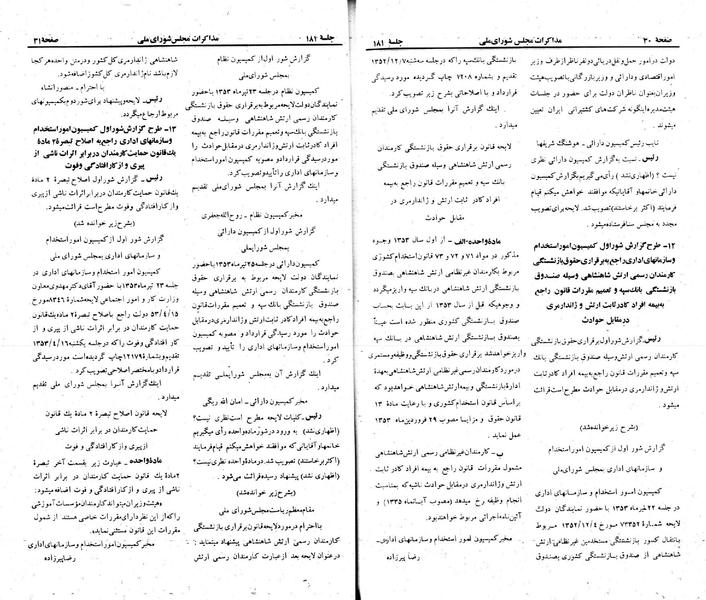 صفحهٔ ۳۰
مذاکرات مجلس شورای ملی
جلسهٔ ۱۸۱
دولت در امور حمل و نقل دریائی دو نفر ناظر از طرف وزیر
امور اقتصادی و دارائی و وزیر بازرگانی با تصویب هیئت
وزیران بعنوان ناظران دولت برای حضور در جلسات
هیئت مدیره اینگونه شرکت‌های کشتیرانی ایران تعیین
میشوند.
نایب رئیس کمیسیون دارائی - هوشنگ شریفها
رئیس - نسبت به گزارش کمیسیون دارائی نظری
نیست؟ (اظهاری نشد) رأی میگیریم بگزارش کمیسیون
دارائی خانمها و آقایانیکه موافقند خواهش میکنم قیام
فرمایند (اکثر برخاستند) تصویب شد. لایحه برای تصویب
مجدد به مجلس سنا فرستاده میشود.
۱۲ - طرح گزارش شور اول کمیسیون امور استخدام
و سازمانهای اداری راجع به برقراری حقوق بازنشستگی
کارمندان رسمی ارتش شاهنشاهی وسیله صندوق
بازنشستگی بانک سپه و تعمیم مقررات قانون راجع
به بیمه افراد کادر ثابت ارتش و ژاندارمری
در مقابل حوادث
رئیس - گزارش شور اول برقراری حقوق بازنشستگی
کارمندان رسمی ارتش وسیله صندوق بازنشستگی بانک
سپه و تعمیم مقررات قانون راجع به بیمه افراد کادر ثابت
ارتش و ژاندارمری در مقابل حوادث مطرح است قرائت
میشود.
(بشرح زیر خوانده شد)
گزارش شور اول از کمیسیون امور استخدام
و سازمانهای اداری به مجلس شورای ملی
کمیسیون امور استخدام و سازمانهای اداری در
جلسه ۲۲ تیرماه ۱۳۵۳ با حضور نمایندگان دولت
لایحه شماره ۷۳۳۵۲ ـ ۱۳۵۲/۱۲/۴ مربوط
بانتقال کسور بازنشستگی مستخدمین غیرنظامی ارتش
شاهنشاهی از صندوق بازنشستگی کشوری به صندوق
بازنشستگی بانک سپه را که در جلسه سه‌شنبه ۱۳۵۲/۱۲/۷
تقدیم و بشماره ۷۲۰۸ چاپ گردیده است مورد رسیدگی
قرارداد و با اصلاحاتی بشرح زیر تصویب کرد.
اینک گزارش آنرا به مجلس شورای ملی تقدیم
میدارد.
لایحه قانونی برقراری حقوق بازنشستگی کارمندان
رسمی ارتش شاهنشاهی وسیله صندوق بازنشستگی
بانک سپه و تعمیم مقررات قانون راجع به بیمه
افراد کادر ثابت ارتش و ژاندارمری در
مقابل حوادث
مادهٔ واحده - الف - از اول سال ۱۳۵۳ وجوه
مذکور در مواد ۷۱ و ۷۲ و ۷۳ قانون استخدام کشوری
مربوط بکارمندان غیرنظامی ارتش شاهنشاهی
بصندوق بازنشستگی بانک سپه واریز میگردد
و وجوهیکه قبل از سال ۱۳۵۳ از این بابت بحساب
صندوق بازنشستگی کشوری منظور شده است عیناً
بصندوق بازنشستگی ارتش شاهنشاهی در بانک سپه
واریز خواهد شد برقراری حقوق بازنشستگی و وظیفه و مستمری
در مورد کارمندان رسمی غیرنظامی ارتش شاهنشاهی بعهدهٔ
ادارهٔ بازنشستگی و بیمه ارتش شاهنشاهی خواهد بود که
براساس قانون استخدام کشوری و با رعایت مادهٔ ۱۳
قانون حقوق و مزایا مصوب ۲۹ فروردین ماه ۱۳۵۳
عمل نماید.
ب - کارمندان غیرنظامی رسمی ارتش شاهنشاهی
مشمول مقررات قانون راجع به بیمه افراد کادر ثابت
ارتش و ژاندارمری در مقابل حوادث ناشیه که بمناسبت
انجام وظیفه رخ میدهد (مصوب آبانماه ۱۳۳۵) و
آئین‌نامه اجرائی مربوط خواهند بود.
مخبر کمیسیون امور استخدام و سازمانهای اداری -
رضا پیرزاده
جلسهٔ ۱۸۱
مذاکرات مجلس شورای ملی
صفحهٔ ۳۱
گزارش شور اول از کمیسیون نظام
به مجلس شورای ملی
کمیسیون نظام در جلسه ۲۳ تیر ماه ۱۳۵۳ با حضور
نمایندگان دولت لایحه مربوط به برقراری حقوق بازنشستگی
کارمندان رسمی ارتش شاهنشاهی وسیله صندوق
بازنشستگی بانک سپه و تعمیم مقررات قانون راجع به بیمه
افراد کادر ثابت ارتش و ژاندارمری در مقابل حوادث را
مورد رسیدگی قرارداد و مصوبه کمیسیون امور استخدام و
سازمانهای اداری را تأیید و تصویب کرد.
اینک گزارش آنرا به مجلس شورای ملی تقدیم
میدارد.
مخبر کمیسیون نظام - روح‌اله جعفری
گزارش شور اول از کمیسیون دارائی
به مجلس شورای ملی
کمیسیون دارائی در جلسه ۲۵ تیر ماه ۱۳۵۳ با حضور
نمایندگان دولت لایحه مربوط به برقراری حقوق
بازنشستگی کارمندان رسمی ارتش شاهنشاهی وسیله
صندوق بازنشستگی بانک سپه و تعمیم مقررات قانون
راجع به بیمه افراد کادر ثابت ارتش و ژاندارمری در مقابل
حوادث را مورد رسیدگی قرارداد و مصوبه کمیسیون
امور استخدام و سازمانهای اداری را تأیید و تصویب
کرد.
اینک گزارش آن به مجلس شورای ملی تقدیم
میدارد.
مخبر کمیسیون دارائی - امان الله ریگی
رئیس - کلیات لایحه مطرح است نظری نیست؟
(اظهاری نشد) به ورود در شور مادهٔ واحده رأی میگیریم
خانمها و آقایانی که موافقند خواهش میکنم قیام فرمایند
(اکثر برخاستند) تصویب شد. در مادهٔ واحده نظری نیست؟
(اظهاری نشد) پیشنهاد رسیده قرائت میشود.
(بشرح زیر خوانده شد)
مقام معظم ریاست مجلس شورای ملی
با احترام در مورد لایحه قانونی برقراری بازنشستگی
کارمندان رسمی ارتش شاهنشاهی پیشنهاد مینماید:
در عنوان لایحه بعد از عبارت کارمندان رسمی ارتش
شاهنشاهی ژاندارمری کل کشور و در متن واحده هرکجا
لازم باشد نام ژاندارمری کل کشور اضافه شود.
با احترام - منصور انشاء
رئیس - لایحه و پیشنهاد برای شور دوم به کمیسیونهای
مربوط ارجاع میگردد.
۱۳ - طرح گزارش شور اول کمیسیون امور استخدام
و سازمانهای اداری راجع به اصلاح تبصرهٔ ۲ مادهٔ
یک قانون حمایت کارمندان در برابر اثرات ناشی از
پیری و از کار افتادگی و فوت
رئیس - گزارش شور اول اصلاح تبصرهٔ ۲ مادهٔ
یک قانون حمایت کارمندان در برابر اثرات ناشی از پیری
و از کار افتادگی و فوت مطرح است قرائت میشود.
(بشرح زیر خوانده شد)
گزارش شور اول از کمیسیون امور استخدام
و سازمانهای اداری به مجلس شورای ملی
کمیسیون امور استخدام و سازمانهای اداری در
جلسه ۲۳ تیرماه ۱۳۵۳ با حضور آقای دکتر مهدوی معاون
وزارت کار و امور اجتماعی لایحه شمارهٔ ۸۳۴۶ مورخ
۵۳/۴/۱۵ دولت راجع به اصلاح تبصرهٔ ۲ مادهٔ یک قانون
حمایت کارمندان در برابر اثرات ناشی از پیری و از
کار افتادگی وفوت را که در جلسه یکشنبه ۱۳۵۳/۴/۱۶
تقدیم و بشماره ۱۲۱۷۹۵ چاپ گردیده است مورد رسیدگی
قرارداد و با مختصر اصلاحی تصویب کرد.
اینک گزارش آنرا به مجلس شورای ملی تقدیم
میدارد.
لایحه قانونی اصلاح تبصرهٔ ۲ مادهٔ یک قانون
حمایت کارمندان در برابر اثرات ناشی
از پیری و از کار افتادگی و فوت
مادهٔ واحده - عبارت زیر بقسمت آخر تبصرهٔ
۲ مادهٔ یک قانون حمایت کارمندان در برابر اثرات ناشی
از پیری و از کار افتادگی و فوت اضافه میشود:
«هیئت وزیران میتواند کارمندان مؤسسات آموزشی
را که از این نظر دارای مقررات خاصی هستند از شمول
مقررات این قانون مستثنی نماید».
مخبر کمیسیون امور استخدام و سازمانهای اداری
رضا پیرزاده